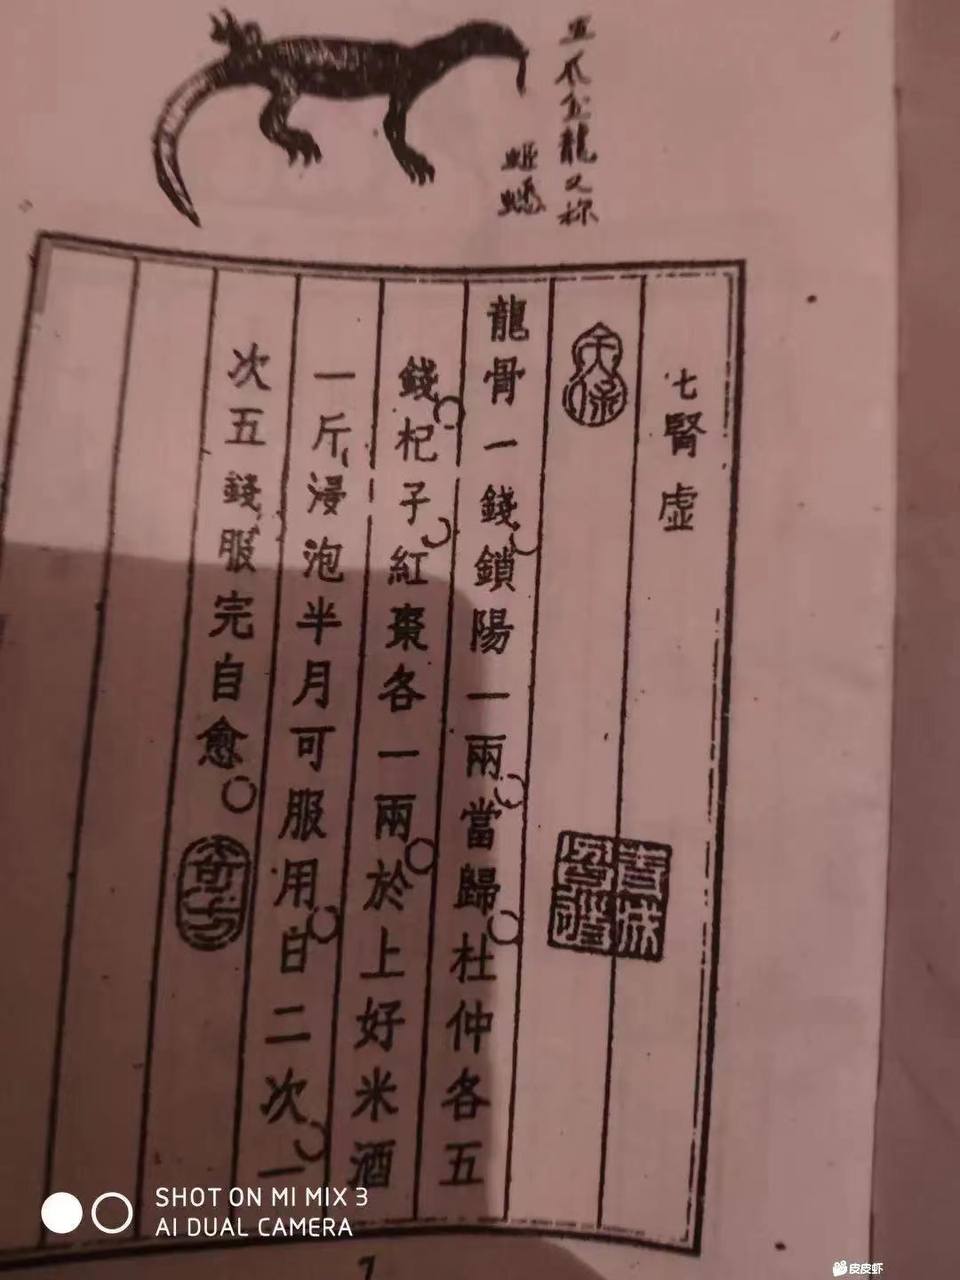 五爪金龍又稱
蛤蟋
七腎虛
龍骨一錢鎖陽一兩當歸杜仲各五
錢杞子紅棗各一兩於上好米酒
一斤浸泡半月可服用日二次一
次五錢服完自愈。
奇方
7
SHOT ON MI MIX 3
AI DUAL CAMERA
皮皮虾